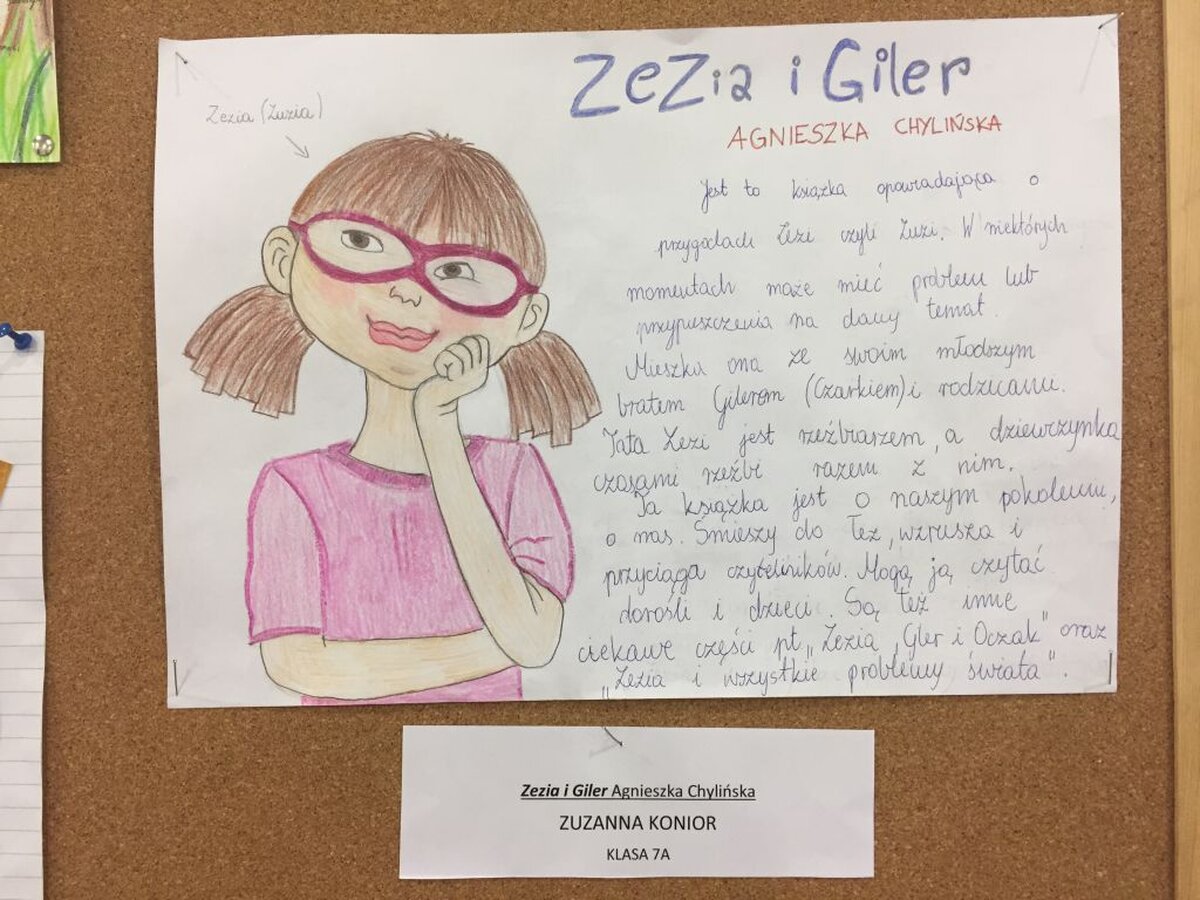 ZeZia i Giler
AGNIESZKA CHYLIŃSKA
Zezia (Zuzia)
Jest to książka opowiadająca o
przygodach Zezi czyli Zuzi. W niektórych
momentach może mieć problem lub
przypuszczenia na dany temat.
Mieszka ona ze swoim młodszym
bratem Gilerem (Czarkiem) i rodzicami.
Tata Zezi jest rzeźbiarzem, a dziewczynka
czasami rzeźbi razem z nim.
Ta książka jest o naszym pokoleniu,
o nas. Śmieszy do łez, wzrusza i
przyciąga czytelników. Mogą ją czytać
dorośli i dzieci. Są też inne
ciekawe części pt. „Zezia, Giler i Oczak" oraz
„Zezia i wszystkie problemy świata".
Zezia i Giler Agnieszka Chylińska
ZUZANNA KONIOR
KLASA 7A